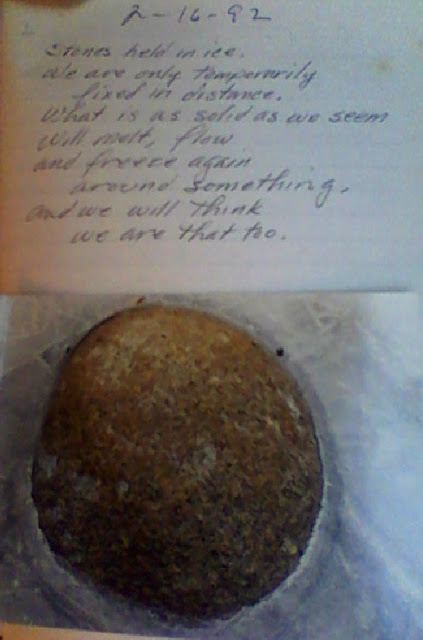 2-16-92
Stones held in ice.
We are only temporarily
fixed in distance.
What is as solid as we seem
will melt, flow
and freeze again
around something,
and we will think
we are that too.